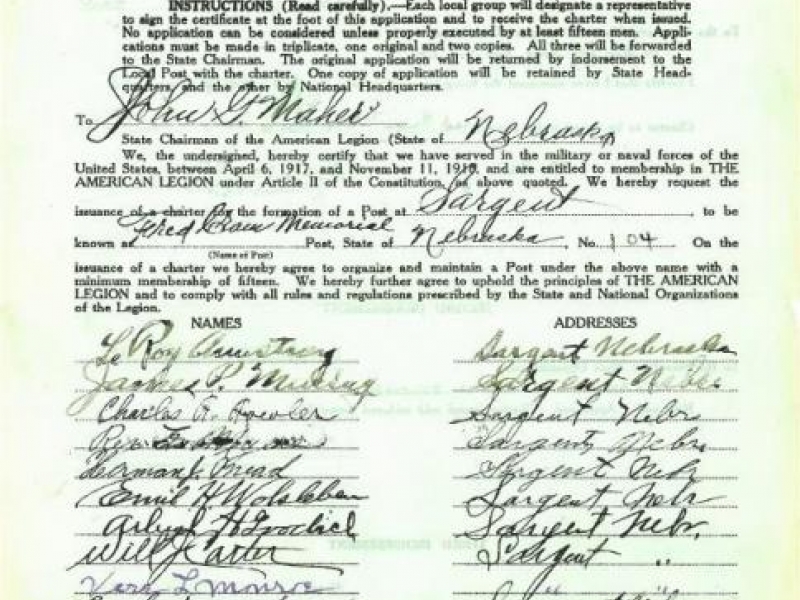 INSTRUCTIONS (Read carefully).—Each local group will designate a representative
to sign the certificate at the foot of this application and to receive the charter when issued.
No application can be considered unless properly executed by at least fifteen men. Appli-
cations must be made in triplicate, one original and two copies. All three will be forwarded
to the State Chairman. The original application will be returned by indorsement to the
Local Post with the charter. One copy of application will be retained by State Head-
quarters and the other by National Headquarters.
To John G. Maher
State Chairman of the American Legion (State of Nebraska
We, the undersigned, hereby certify that we have served in the military or naval forces of the
United States, between April 6, 1917, and November 11, 1918, and are entitled to membership in THE
AMERICAN LEGION under Article II of the Constitution, as above quoted. We hereby request the
issuance of a charter for the formation of a Post at Sargent, to be
known as Fred Memorial Post, State of Nebraska, No. 104 On the
(Name of Post)
issuance of a charter we hereby agree to organize and maintain a Post under the above name with a
minimum membership of fifteen. We hereby further agree to uphold the principles of THE AMERICAN
LEGION and to comply with all rules and regulations prescribed by the State and National Organizations
of the Legion.
NAMES ADDRESSES
Le Roy Armstrong Sargent Nebraska
James P. Sargent Nebr
Charles Sargent Nebr
Sargent Nebr
Herman J. Mead Sargent Nebr
Emil H Wolsleben Sargent Nebr
Sargent Nebr.
Will Carter Sargent "
Vern L Monroe " "